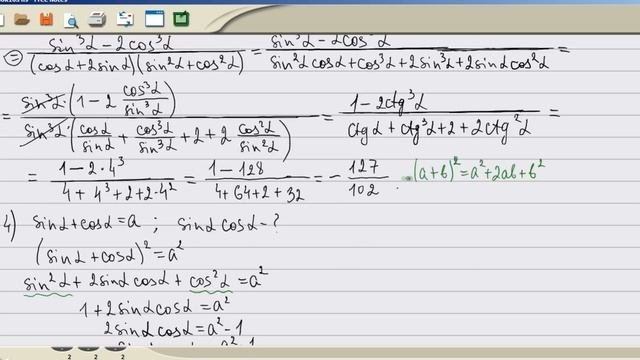 = (sin³α − 2cos³α)/((cosα + 2sinα)(sin²α + cos²α)) = (sin³α − 2cos³α)/(sin²α cosα + cos³α + 2sin³α + 2sinα cos²α) =
= (sin³α · (1 − 2 cos³α/sin³α))/(sin³α · (cosα/sinα + cos³α/sin³α + 2 + 2 cos²α/sin²α)) = (1 − 2ctg³α)/(ctgα + ctg³α + 2 + 2ctg²α) =
= (1 − 2·4³)/(4 + 4³ + 2 + 2·4²) = (1 − 128)/(4 + 64 + 2 + 32) = − 127/102 . (a+b)² = a² + 2ab + b²
4) sinα + cosα = a ; sinα cosα − ?
(sinα + cosα)² = a²
sin²α + 2sinα cosα + cos²α = a²
1 + 2sinα cosα = a²
2sinα cosα = a² − 1
2 2 2